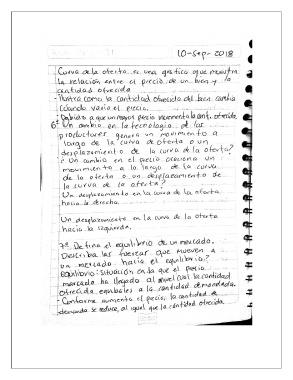 10-Sep-2018
Curva de la oferta: es una gráfica que muestra
la relación entre el precio de un bien y la
cantidad ofrecida
-ilustra como la cantidad ofrecida del bien cambia
cuando varía el precio.
-Debido a que un mayor precio incrementa la cant. ofrecida
6º Un cambio en la tecnología de los
productores genera un movimiento a
largo de la curva de oferta o un
desplazamiento de la curva de la oferta?
¿Un cambio en el precio provoca un
movimiento a lo largo de la curva
de la oferta o un desplazamiento de
la curva de la oferta?
Un desplazamiento en la curva de la oferta
hacia la derecha.
Un desplazamiento en la curva de la oferta
hacia la izquierda.
7º Defina el equilibrio de un mercado.
Describa las fuerzas que mueven a
un mercado hacia el equilibrio.?
equilibrio: Situación en la que el precio
mercado ha llegado al nivel cual la cantidad
ofrecida equivales a la cantidad demandada.
- Conforme aumenta el precio, la cantidad de
demanda se reduce, al igual que la cantidad ofrecida